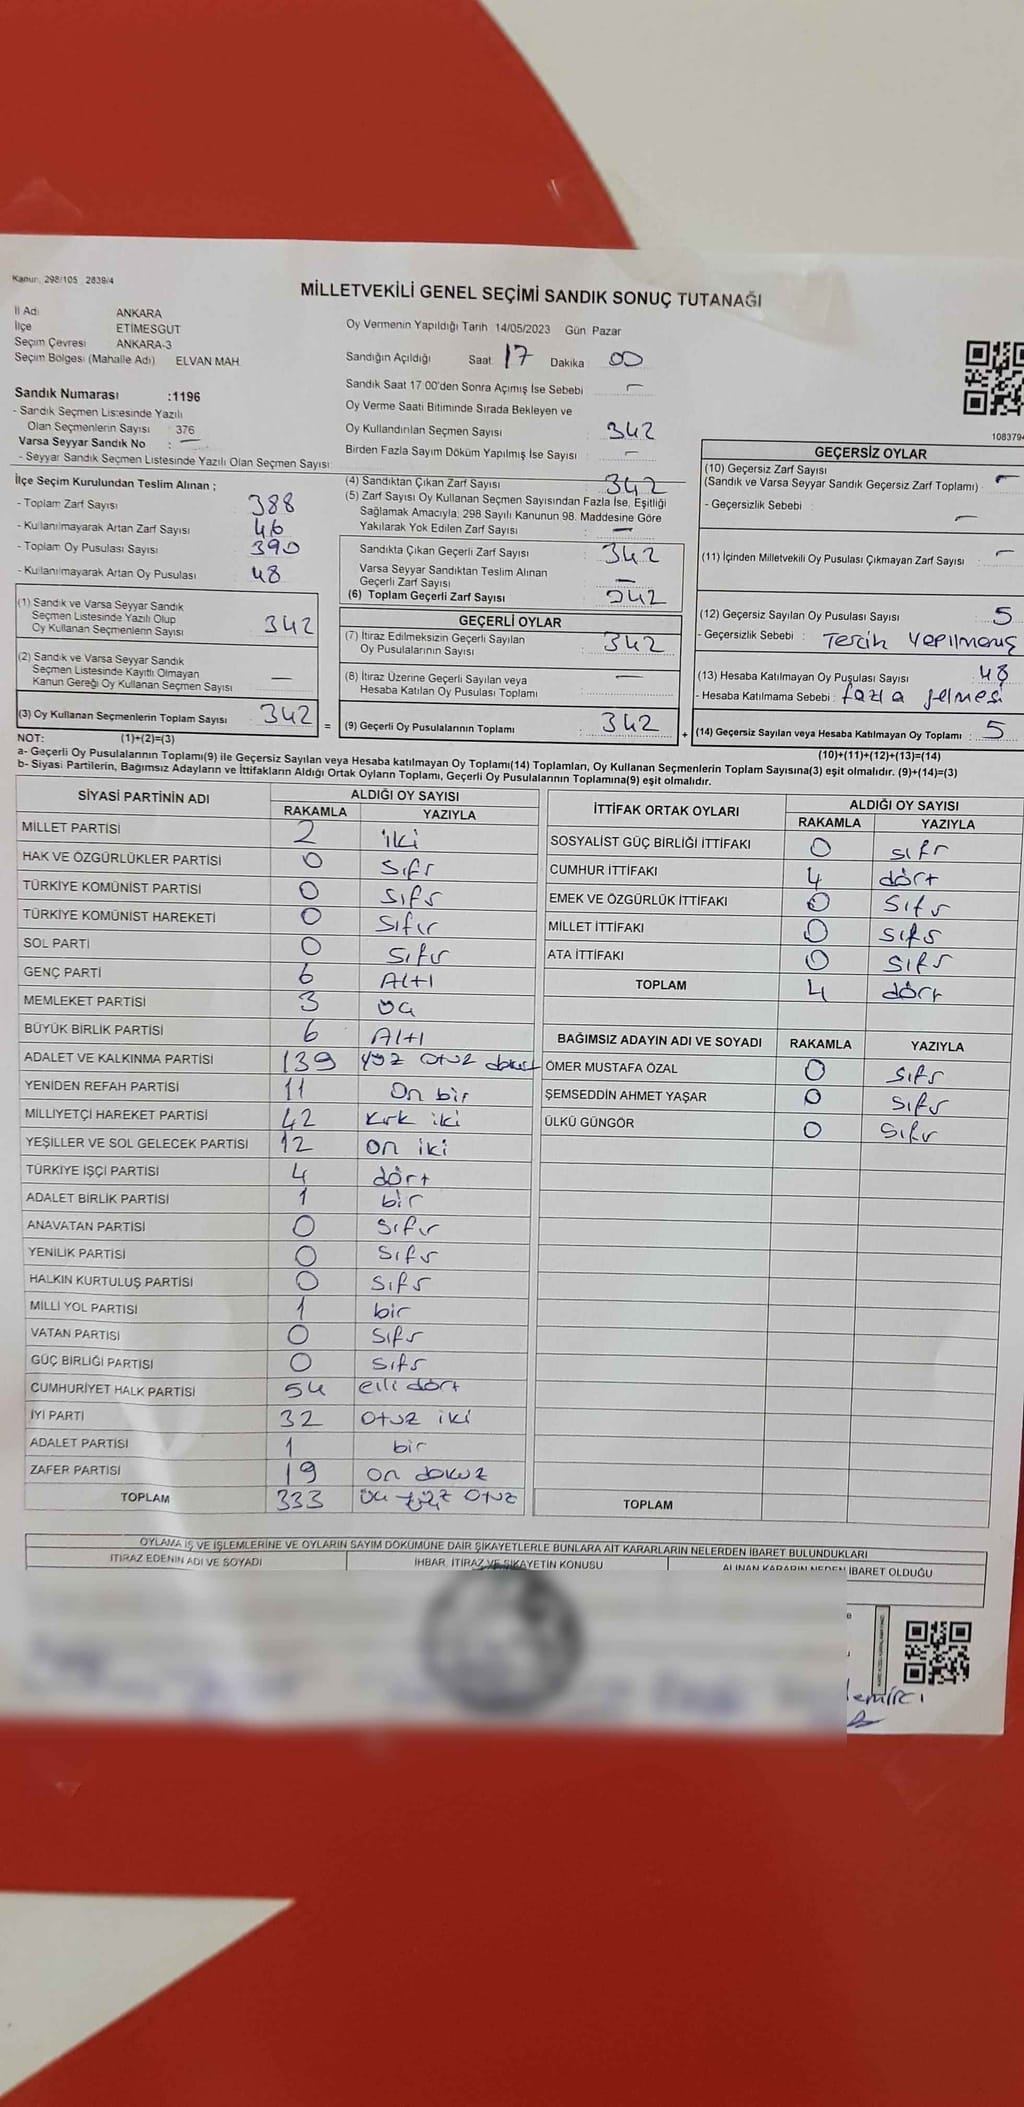 Kanun: 298/105 2839/4
MİLLETVEKİLİ GENEL SEÇİMİ SANDIK SONUÇ TUTANAĞI
İl Adı ANKARA
İlçe ETİMESGUT
Seçim Çevresi ANKARA-3
Seçim Bölgesi (Mahalle Adı) ELVAN MAH.
Sandık Numarası :1196
- Sandık Seçmen Listesinde Yazılı
Olan Seçmenlerin Sayısı : 376
Varsa Seyyar Sandık No : —
- Seyyar Sandık Seçmen Listesinde Yazılı Olan Seçmen Sayısı:
Oy Vermenin Yapıldığı Tarih 14/05/2023 Gün Pazar
Sandığın Açıldığı Saat 17 Dakika 00
Sandık Saat 17 00'den Sonra Açımış İse Sebebi —
Oy Verme Saati Bitiminde Sırada Bekleyen ve
Oy Kullandırılan Seçmen Sayısı : 342
Birden Fazla Sayım Döküm Yapılmış İse Sayısı : —
108379
İlçe Seçim Kurulundan Teslim Alınan ;
- Toplam Zarf Sayısı : 388
- Kullanılmayarak Artan Zarf Sayısı : 46
- Toplam Oy Pusulası Sayısı : 390
- Kullanılmayarak Artan Oy Pusulası : 48
(1) Sandık ve Varsa Seyyar Sandık
Seçmen Listesinde Yazılı Olup
Oy Kullanan Seçmenlerin Sayısı : 342
(2) Sandık ve Varsa Seyyar Sandık
Seçmen Listesinde Kayıtlı Olmayan
Kanun Gereği Oy Kullanan Seçmen Sayısı : —
(3) Oy Kullanan Seçmenlerin Toplam Sayısı : 342
(4) Sandıktan Çıkan Zarf Sayısı : 342
(5) Zarf Sayısı Oy Kullanan Seçmen Sayısından Fazla İse, Eşitliği
Sağlamak Amacıyla; 298 Sayılı Kanunun 98. Maddesine Göre
Yakılarak Yok Edilen Zarf Sayısı : —
Sandıkta Çıkan Geçerli Zarf Sayısı : 342
Varsa Seyyar Sandıktan Teslim Alınan
Geçerli Zarf Sayısı : —
(6) Toplam Geçerli Zarf Sayısı : 342
GEÇERLİ OYLAR
(7) İtiraz Edilmeksizin Geçerli Sayılan
Oy Pusulalarının Sayısı : 342
(8) İtiraz Üzerine Geçerli Sayılan veya
Hesaba Katılan Oy Pusulası Toplamı : —
(9) Geçerli Oy Pusulalarının Toplamı : 342
GEÇERSİZ OYLAR
(10) Geçersiz Zarf Sayısı
(Sandık ve Varsa Seyyar Sandık Geçersiz Zarf Toplamı) : —
- Geçersizlik Sebebi : —
(11) İçinden Milletvekili Oy Pusulası Çıkmayan Zarf Sayısı : —
(12) Geçersiz Sayılan Oy Pusulası Sayısı : 5
- Geçersizlik Sebebi : Tercih Yapılmamış
(13) Hesaba Katılmayan Oy Pusulası Sayısı : 48
- Hesaba Katılmama Sebebi : fazla gelmesi
= + (14) Geçersiz Sayılan veya Hesaba Katılmayan Oy Toplamı : 5
NOT: (1)+(2)=(3) (10)+(11)+(12)+(13)=(14)
a- Geçerli Oy Pusulalarının Toplamı(9) ile Geçersiz Sayılan veya Hesaba katılmayan Oy Toplamı(14) Toplamları, Oy Kullanan Seçmenlerin Toplam Sayısına(3) eşit olmalıdır. (9)+(14)=(3)
b- Siyasi Partilerin, Bağımsız Adayların ve İttifakların Aldığı Ortak Oyların Toplamı, Geçerli Oy Pusulalarının Toplamına(9) eşit olmalıdır.
SİYASİ PARTİNİN ADI ALDIĞI OY SAYISI
RAKAMLA YAZIYLA
MİLLET PARTİSİ 2 iki
HAK VE ÖZGÜRLÜKLER PARTİSİ 0 Sıfr
TÜRKİYE KOMÜNİST PARTİSİ 0 Sıfr
TÜRKİYE KOMÜNİST HAREKETİ 0 Sıfır
SOL PARTİ 0 Sıfır
GENÇ PARTİ 6 Altı
MEMLEKET PARTİSİ 3 üç
BÜYÜK BİRLİK PARTİSİ 6 Altı
ADALET VE KALKINMA PARTİSİ 139 yüz otuz dokuz
YENİDEN REFAH PARTİSİ 11 On bir
MİLLİYETÇİ HAREKET PARTİSİ 42 kırk iki
YEŞİLLER VE SOL GELECEK PARTİSİ 12 on iki
TÜRKİYE İŞÇİ PARTİSİ 4 dört
ADALET BİRLİK PARTİSİ 1 bir
ANAVATAN PARTİSİ 0 Sıfır
YENİLİK PARTİSİ 0 Sıfr
HALKIN KURTULUŞ PARTİSİ 0 Sıfr
MİLLİ YOL PARTİSİ 1 bir
VATAN PARTİSİ 0 Sıfr
GÜÇ BİRLİĞİ PARTİSİ 0 Sıfr
CUMHURİYET HALK PARTİSİ 54 elli dört
İYİ PARTİ 32 otuz iki
ADALET PARTİSİ 1 bir
ZAFER PARTİSİ 19 on dokuz
TOPLAM 333 üç yüz otuz
İTTİFAK ORTAK OYLARI ALDIĞI OY SAYISI
RAKAMLA YAZIYLA
SOSYALİST GÜÇ BİRLİĞİ İTTİFAKI 0 sıfr
CUMHUR İTTİFAKI 4 dört
EMEK VE ÖZGÜRLÜK İTTİFAKI 0 Sıfr
MİLLET İTTİFAKI 0 Sıfr
ATA İTTİFAKI 0 Sıfr
TOPLAM 4 dört
BAĞIMSIZ ADAYIN ADI VE SOYADI RAKAMLA YAZIYLA
ÖMER MUSTAFA ÖZAL 0 Sıfr
ŞEMSEDDİN AHMET YAŞAR 0 Sıfr
ÜLKÜ GÜNGÖR 0 Sıfır
TOPLAM
OYLAMA İŞ VE İŞLEMLERİNE VE OYLARIN SAYIM DÖKÜMÜNE DAİR ŞİKAYETLERLE BUNLARA AİT KARARLARIN NELERDEN İBARET BULUNDUKLARI
İTİRAZ EDENİN ADI VE SOYADI İHBAR, İTİRAZ VE ŞİKAYETİN KONUSU ALINAN KARARIN NEDEN İBARET OLDUĞU